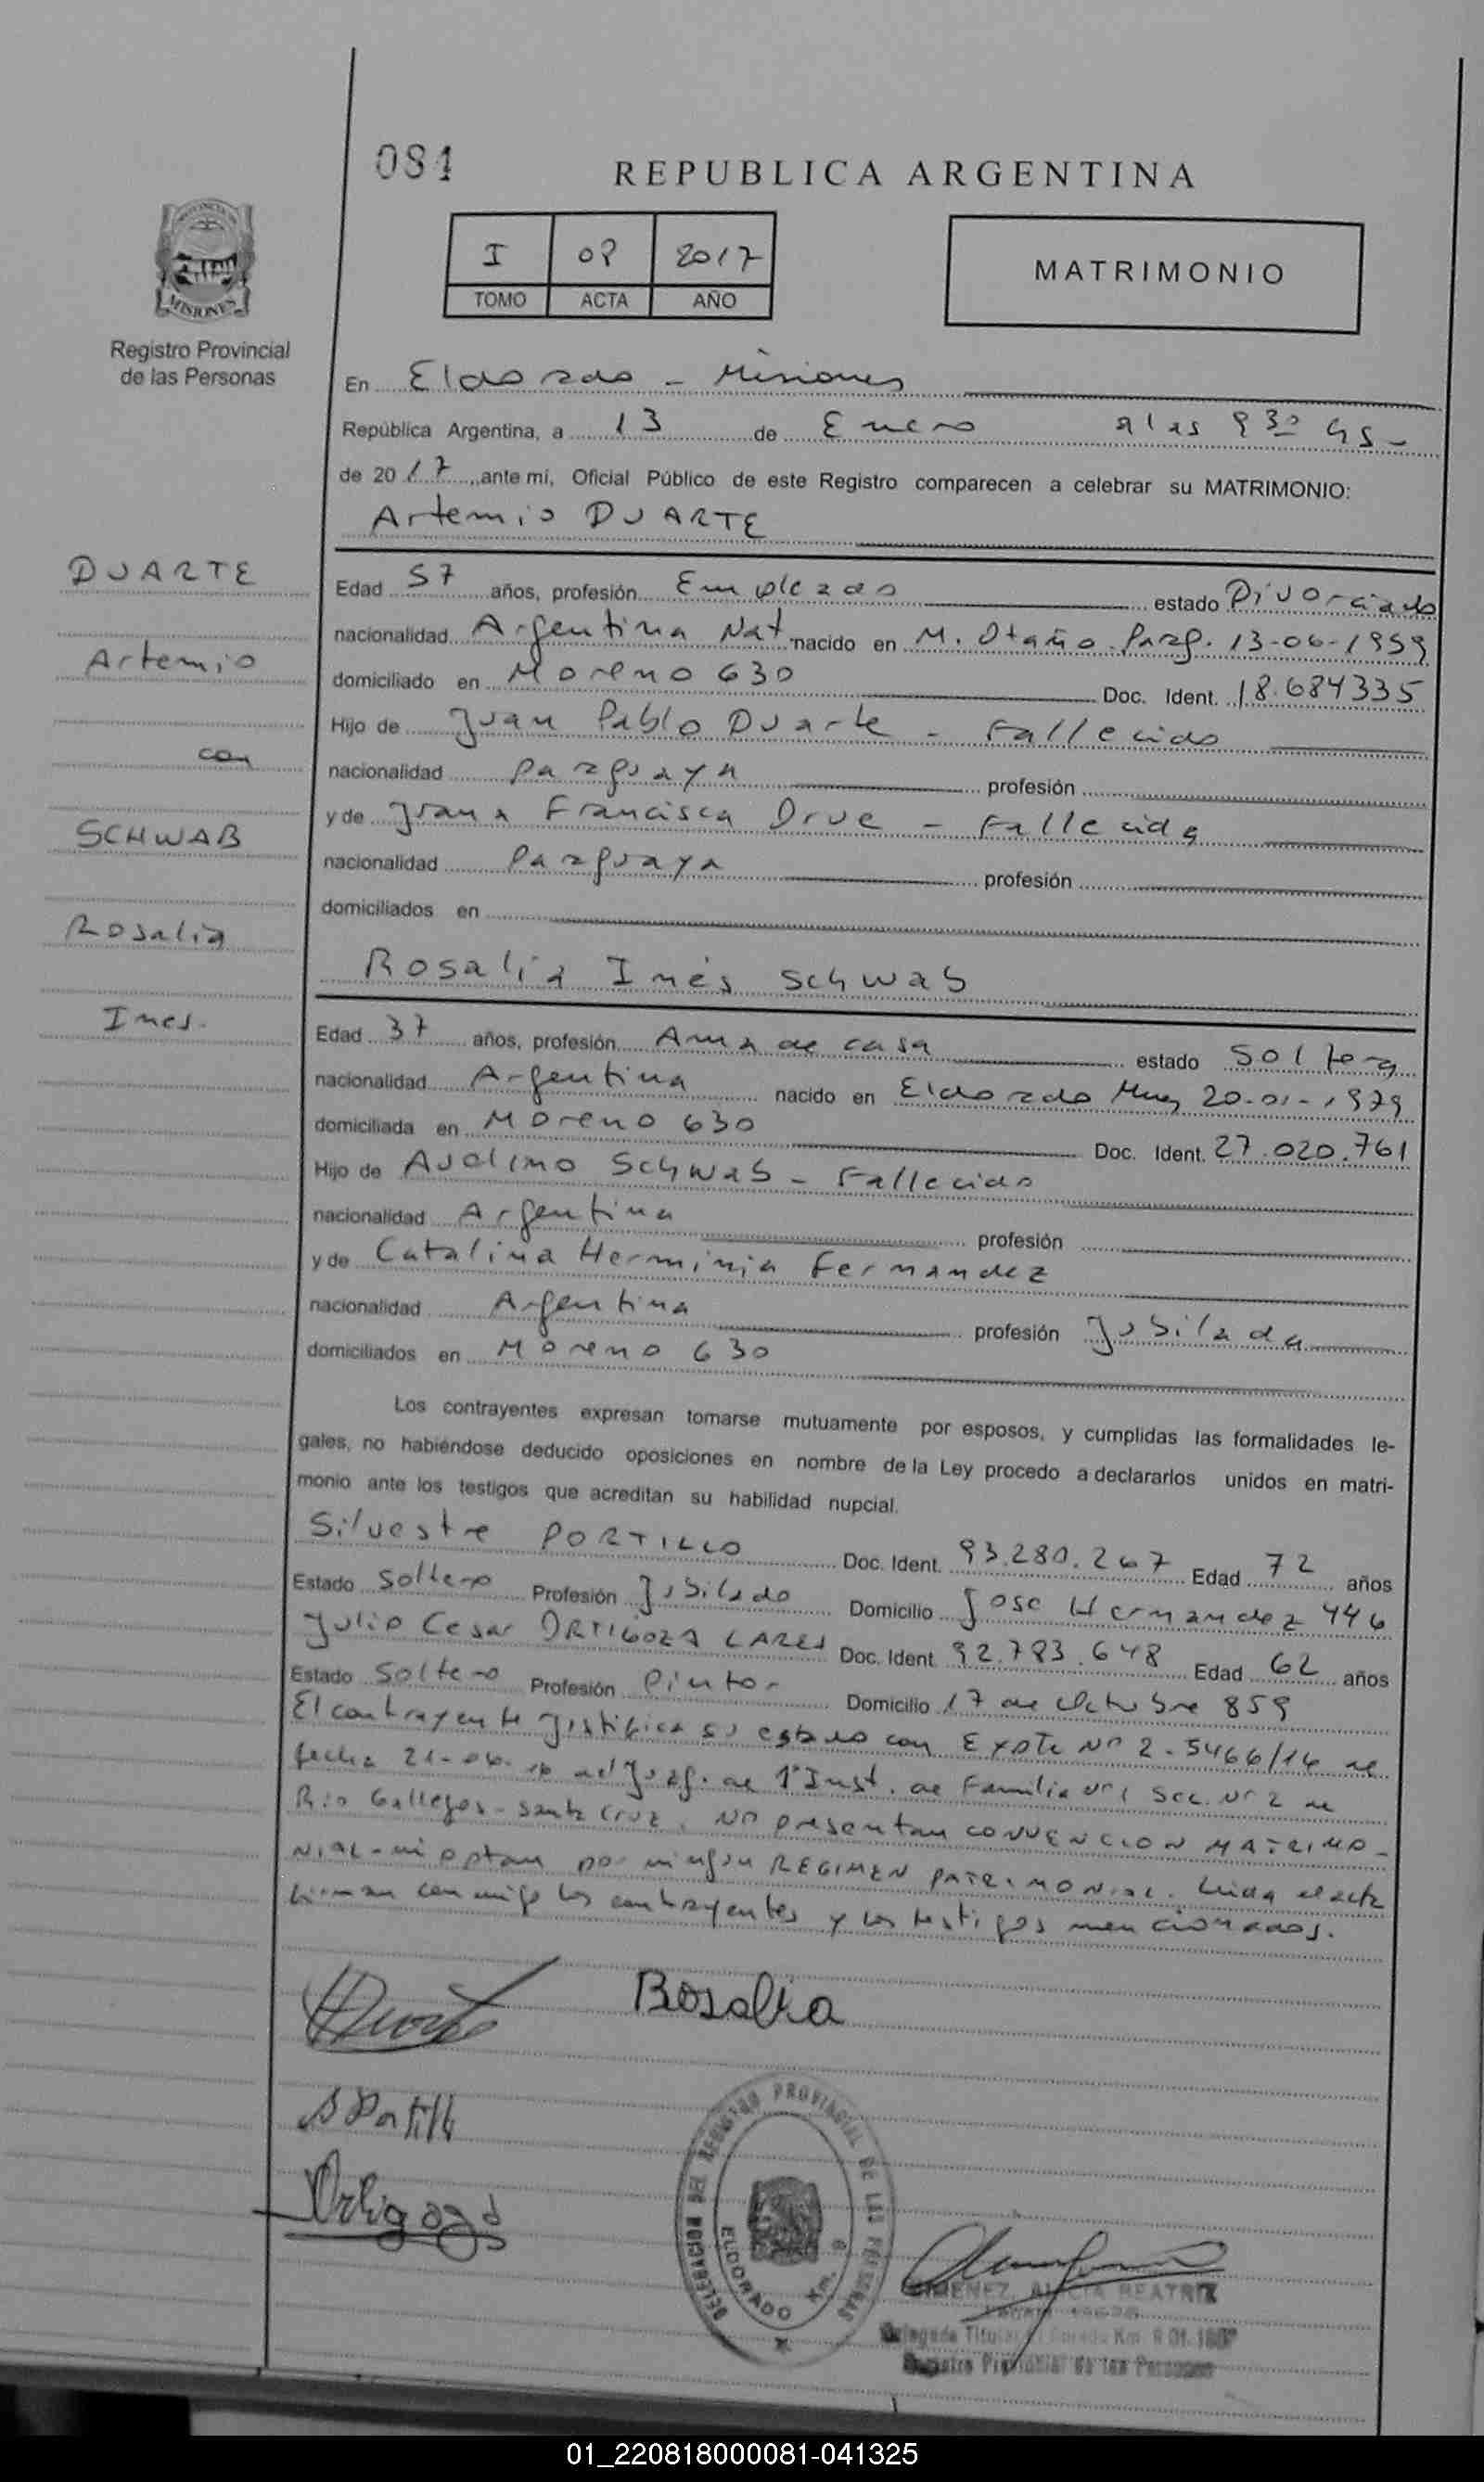 081
REPUBLICA ARGENTINA
I 09 2017
TOMO ACTA AÑO
MATRIMONIO
MISIONES
Registro Provincial
de las Personas
En Eldorado - Misiones
República Argentina, a 13 de Enero a las 9 30 hs -
de 2017, ante mí, Oficial Público de este Registro comparecen a celebrar su MATRIMONIO:
Artemio DUARTE
DUARTE
Artemio
con
SCHWAB
Rosalia
Ines.
Edad 57 años, profesión Empleado estado Divorciado
nacionalidad Argentina Nat. nacido en M. Otaño. Parag. 13-06-1959
domiciliado en Moreno 630 Doc. Ident. 18.684335
Hijo de Juan Pablo Duarte - Fallecido
nacionalidad paraguaya profesión
y de Juana Francisca Drue - Fallecida
nacionalidad Paraguaya profesión
domiciliados en
Rosalia Inés Schwab
Edad 37 años, profesión Ama de casa estado Soltera
nacionalidad Argentina nacido en Eldorado Mnes 20-01-1979
domiciliada en Moreno 630 Doc. Ident. 27.020.761
Hijo de Avelino Schwab - Fallecido
nacionalidad Argentina profesión
y de Catalina Herminia Fernandez
nacionalidad Argentina profesión Jubilada
domiciliados en Moreno 630
Los contrayentes expresan tomarse mutuamente por esposos, y cumplidas las formalidades le-
gales, no habiéndose deducido oposiciones en nombre de la Ley procedo a declararlos unidos en matri-
monio ante los testigos que acreditan su habilidad nupcial.
Silvestre PORTILLO Doc. Ident. 93.280.267 Edad 72 años
Estado Soltero Profesión Jubilado Domicilio Jose Hernandez 446
Julio Cesar ORTIGOZA LARES Doc. Ident. 92.783.648 Edad 62 años
Estado Soltero Profesión Pintor Domicilio 17 de Octubre 859
El contrayente justifica su estado con Expte Nº 2-5466/14 de
fecha 21-06-16 del Juzg. de 1º Inst. de Familia Nº 1 Sec. Nº 2 de
Rio Gallegos - Santa Cruz. No presentan CONVENCION MATRIMO-
NIAL - ni optan por ningun REGIMEN PATRIMONIAL. Leida el acta
firman conmigo los contrayentes y los testigos mencionados.
Duarte
Rosalia
S Portillo
Ortigoza
DELEGACION DEL REGISTRO PROVINCIAL DE LAS PERSONAS
ELDORADO Km. 9
GIMENEZ, ALICIA BEATRIZ
Delegada Titular Eldorado Km. 9
Registro Provincial de las Personas
01_220818000081-041325